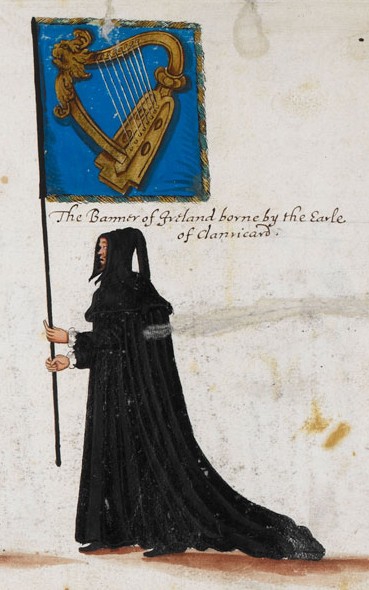 The Banner of Ireland borne by the Earle
of Clanricard: